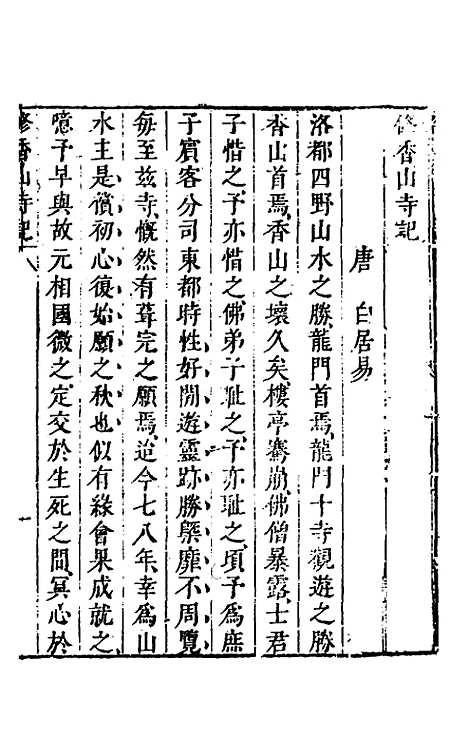 修香山寺記
唐 白居易
洛都四野山水之勝龍門首焉龍門十寺觀遊之勝
香山首焉香山之壞久矣樓亭騫崩佛僧暴露士君
子惜之予亦惜之佛弟子耻之予亦耻之頃予爲庶
子賓客分司東都時性好閒遊靈跡勝槩靡不周覽
每至兹寺慨然有葺完之願焉迨今七八年幸爲山
水主是償初心復始願之秋也似有緣會果成就之
噫予早與故元相國微之定交於生死之間冥心於
修香山寺記
一